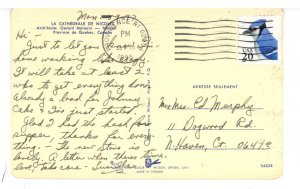 Mon -
LA CATHEDRALE DE NICOLET
Architecte, Gerard Malouin - Nicolet
Province de Quebec, Canada
PM
Hi -
Just to let you
home working like
It will take at least 2
wks to get everything done,
already a load for Johnny
Cake! I'm just started.
Glad I had the hash for
supper, thanks for every-
thing - The new store is
lovely. A letter when there's
time, take care -
USA
20
ADRESSE SEULEMENT
Mr Mrs. Ed. Murphy
11 Dogwood Rd
N. Haven, Ct. 06473
54529
MADE IN CANADA